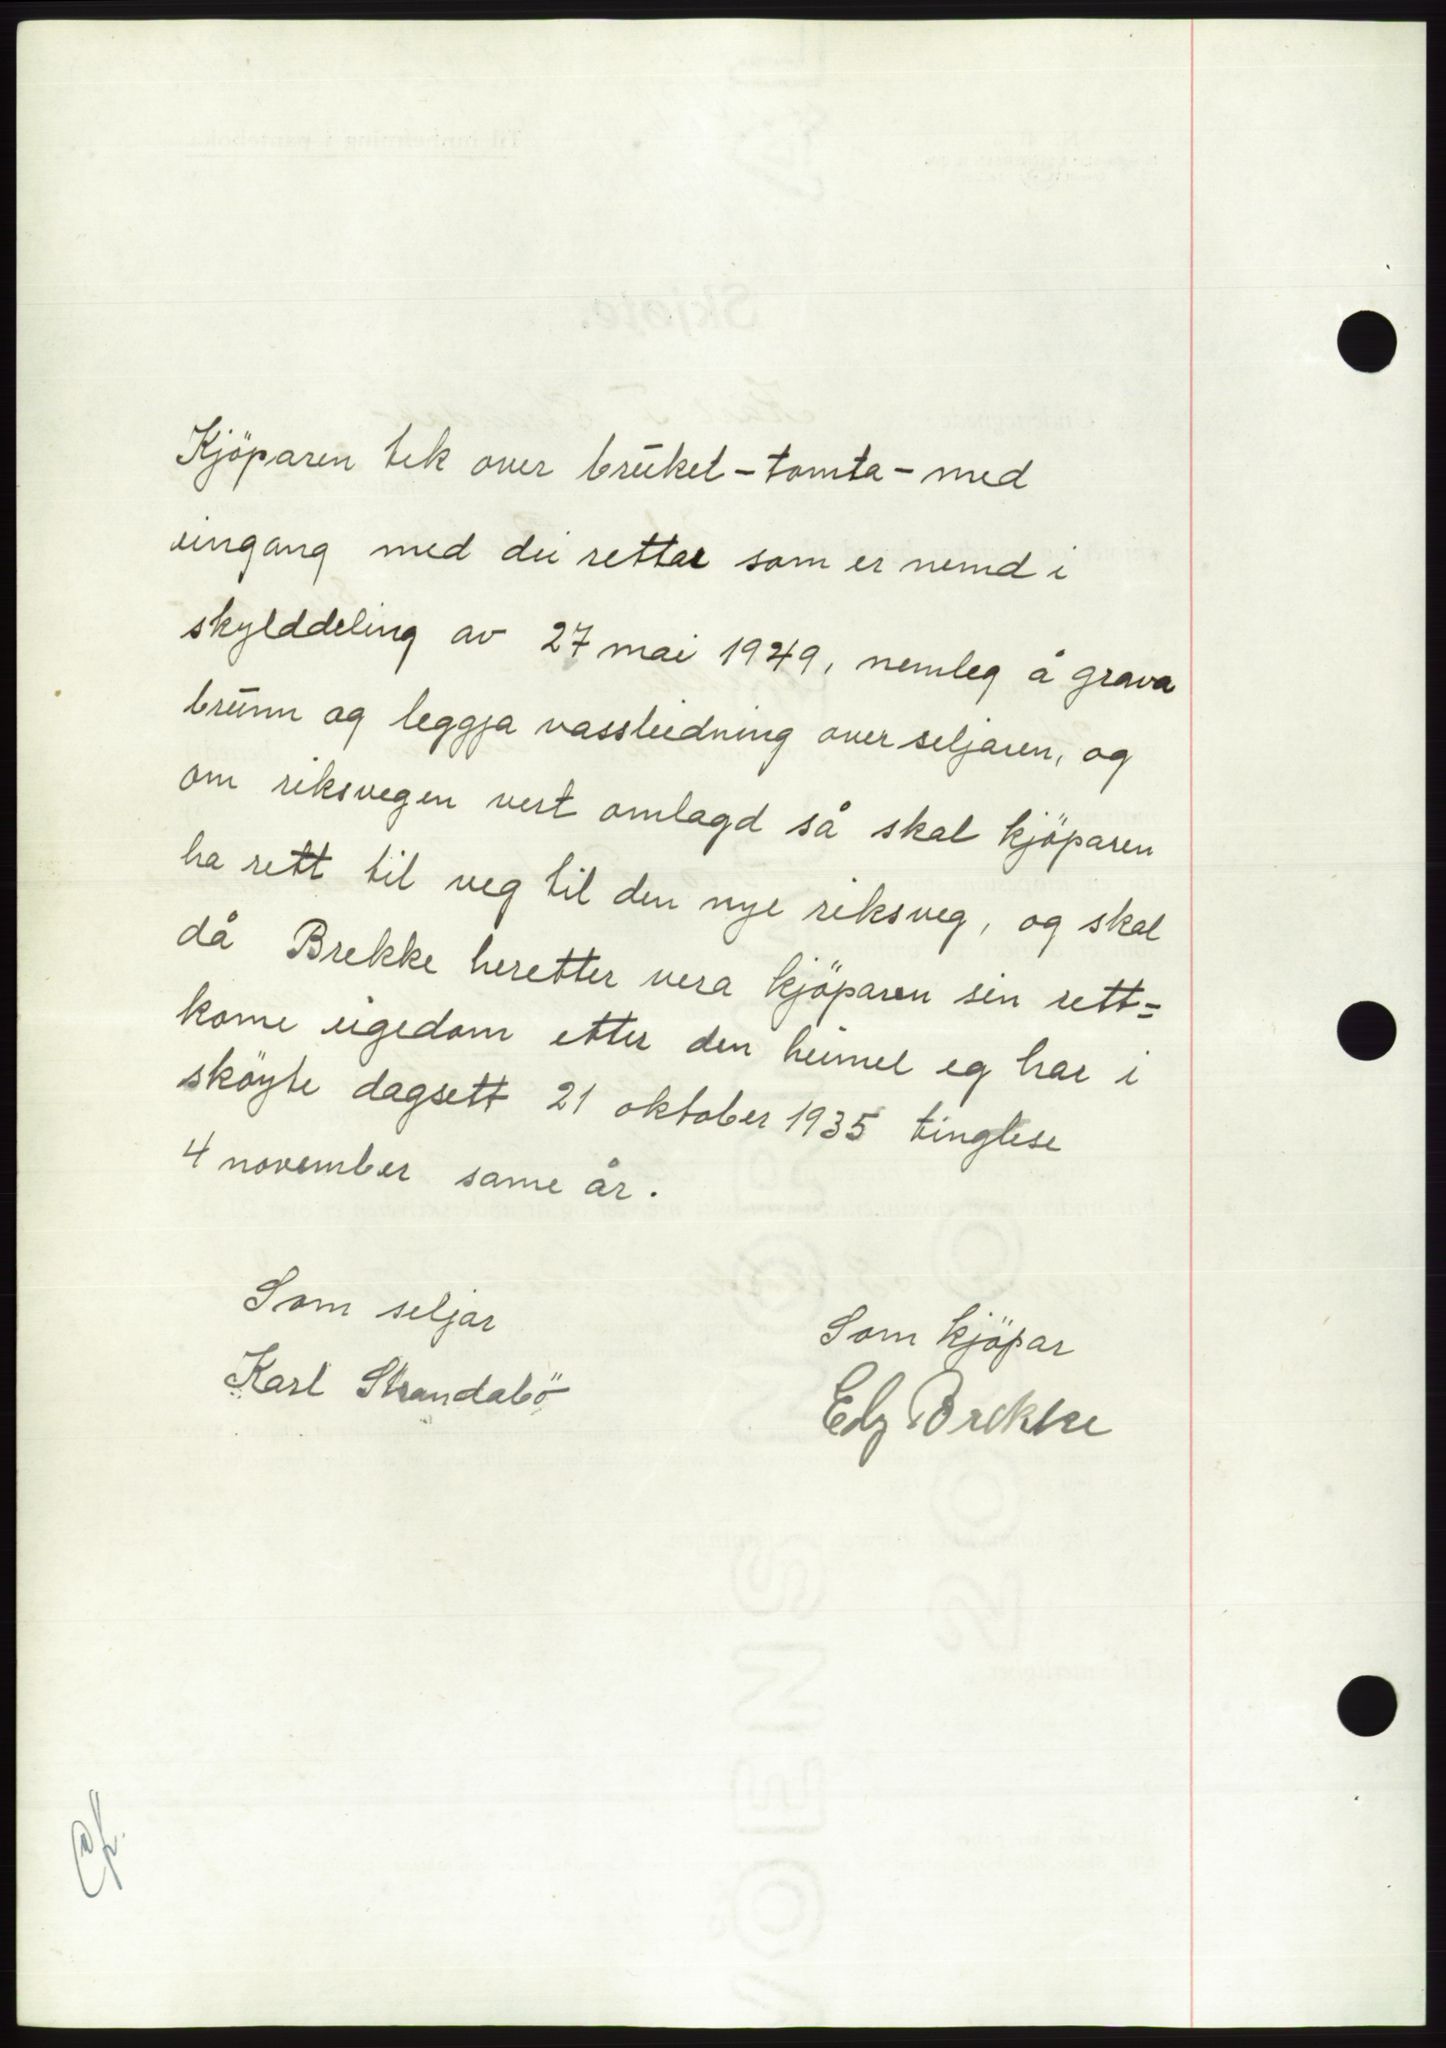 Kjöparen tek over bruket - tomta - med
eingang med dei rettar som er nemd i
skylddeling av 27 mai 1949, nemleg å grava
brunn og leggja vassleidning over seljaren, og
om riksvegen vert omlagd så skal kjöparen
ha rett til veg til den nye riksveg, og skal
då Brekke heretter vera kjöparen sin rett=
kome eigedom etter den heimel eg har i
sköyte dagsett 21 oktober 1935 tinglese
4 november same år.
Som seljar
Karl Strandabö
Som kjöpar
Brekke